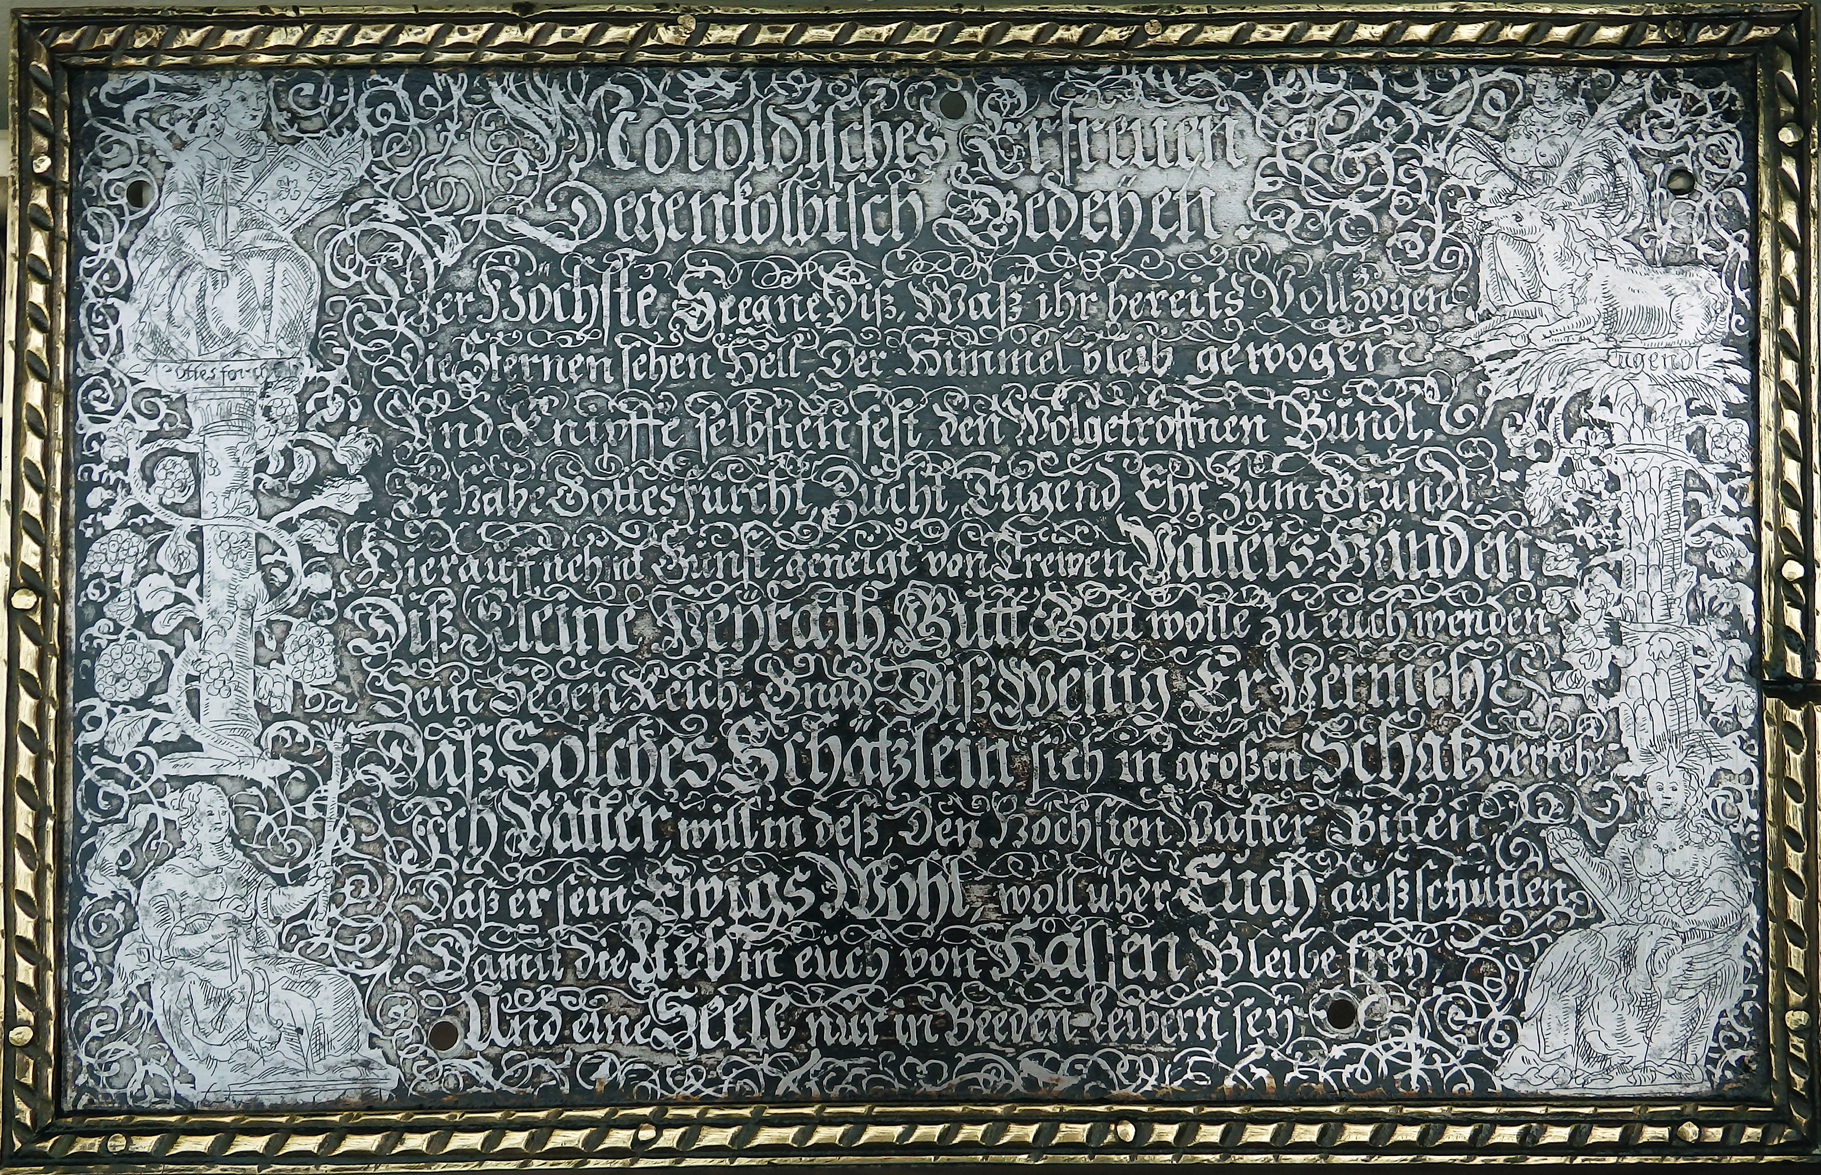 Moroldisches Erfreuen
Degenkolbisch Gedeÿen.
Der Höchste Seegne Diß, Waß ihr bereits Vollzogen
Die Sternen sehen Hell Der Himmel bleib gewogen
Und Knipffe selbsten fest, den Wolgetroffnen Bundt,
Er habe Gottesfurcht, Zucht, Tugend Ehr Zum Grundt,
Hierauff nehmt Gunst geneigt von Trewen Vatters Händen
Diß Kleine Heyrath Gutt Gott wolle zu euch wenden
Sein Segen Reich Gnad Diß Wenig Er Vermehr
Daß Solches Schätzlein sich in großen Schatz verkehr
Ich Vatter, will in deß, Den Höchsten Vatter Bitten
Daß er sein Ewigs Wohl, woll über Euch außschütten
Damit die Lieb in euch von Hassen Bleibe frey
Und eine Seele nur in Beeden Leibern seÿ.
ottesforcht
Tugendt